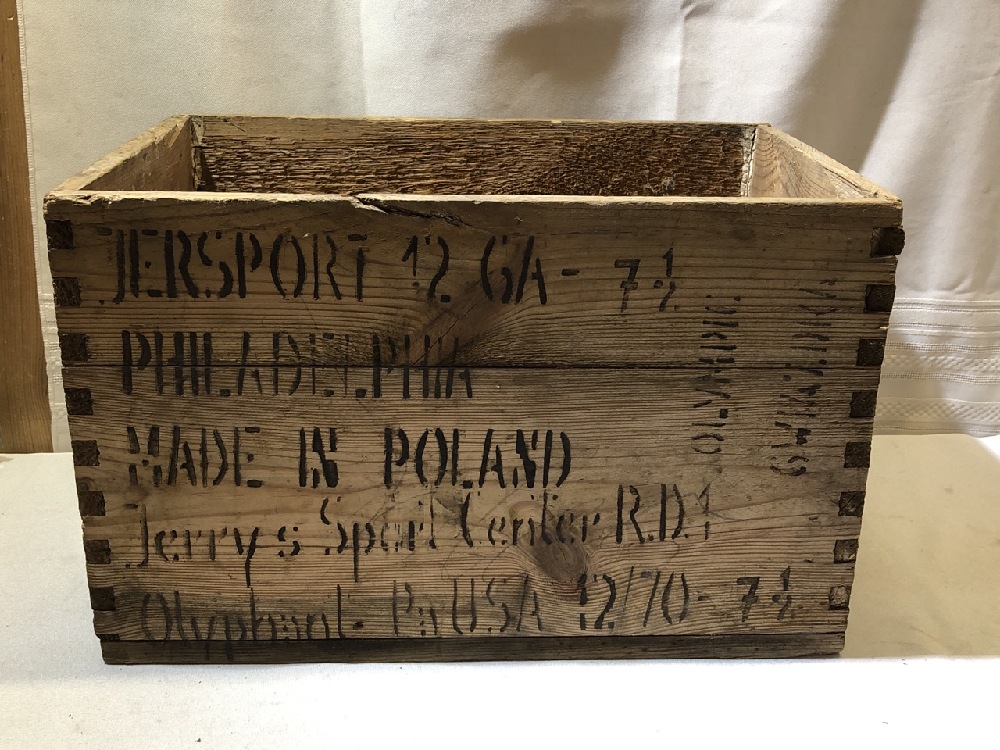 JERSPORT 12 GA- 7 1/2
PHILADELPHIA
MADE IN POLAND
Jerry's Sport Center R.D.1
Olyphant- Pa USA 12/70- 7 1/2